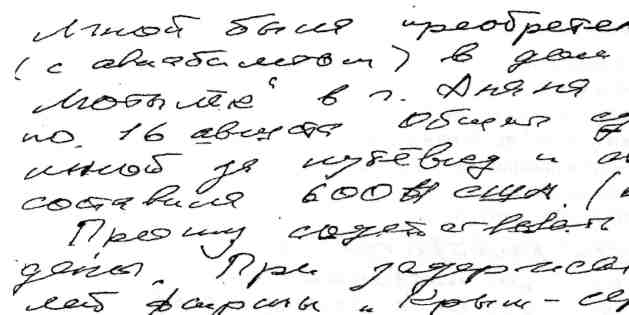 Мной была преобретен
(с авиабилетом) в дом
Мотылёк" в г. Анапа
по 16 августа Общая
мной за путёвку и
составила 600 $ сша. (
Прошу содействовать
дены. При задержа
лей фирмы "Крым-